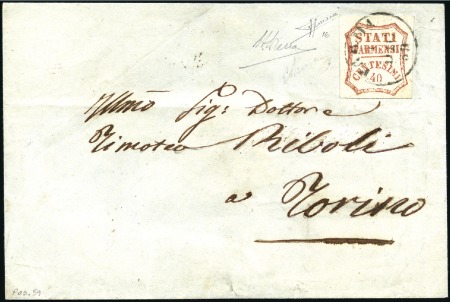 STATI
PARMENSI
CENTESIMI
40
Illmo Sig: Dottore
Timoteo Riboli
a
Torino
Pos. 59